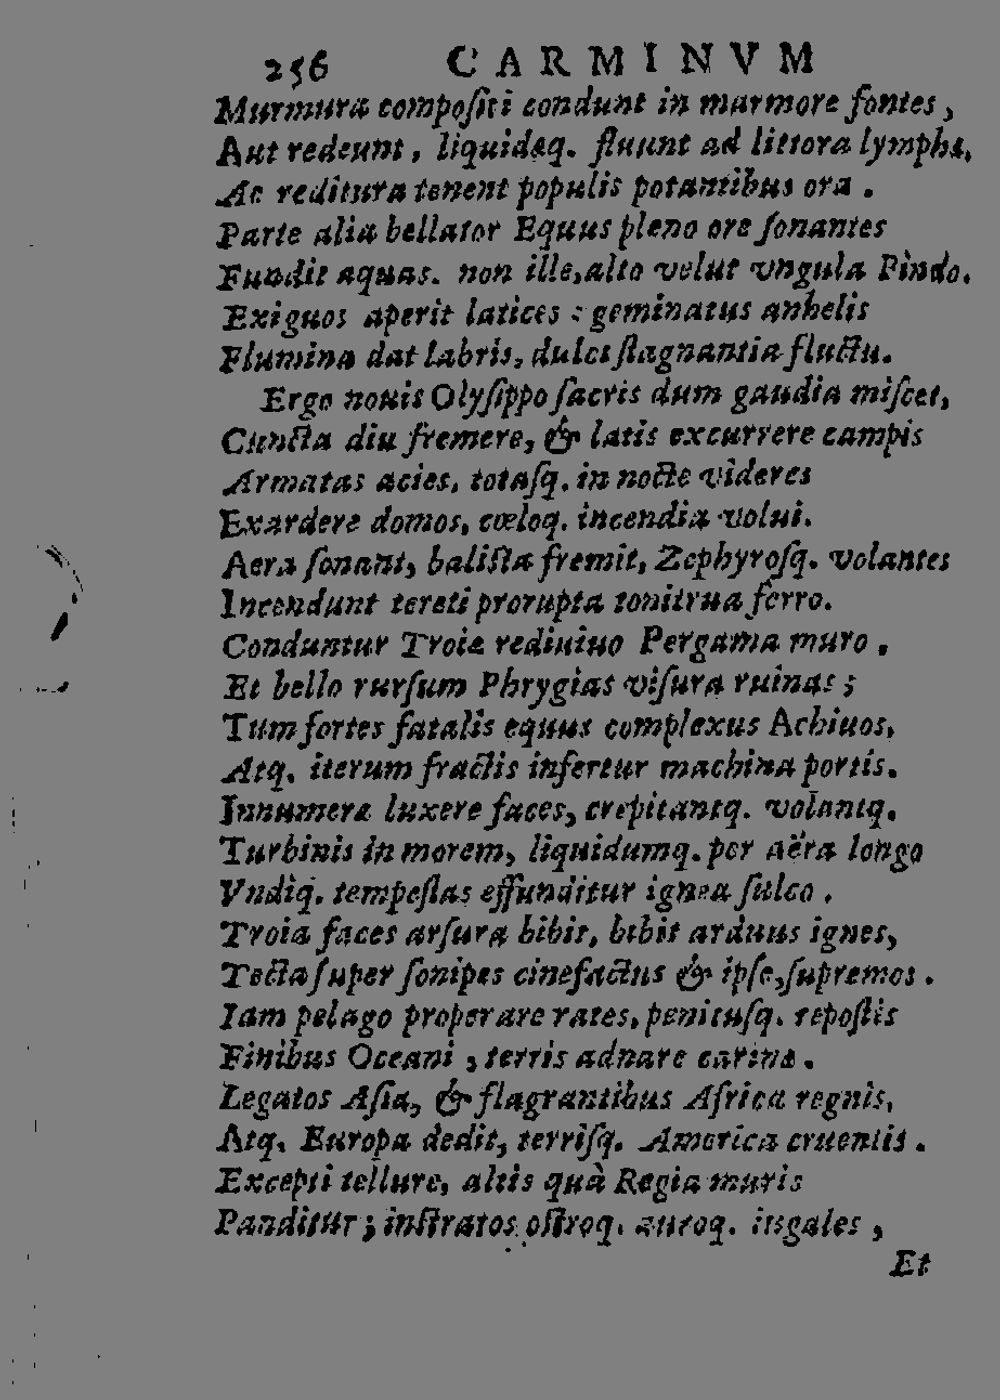 256 CARMINVM
Murmura compoſiti condunt in marmore fontes,
Aut redeunt, liquidæq. fluunt ad littora lymphæ,
Ac reditura tenent populis potantibus ora.
Parte alia bellator Equus pleno ore ſonantes
Fundit aquas. non ille, alto velut vngula Pindo.
Exiguos aperit latices : geminatus anhelis
Flumina dat labris, dulci ſtagnantia fluctu.
Ergo nouis Olyſippo ſacris dum gaudia miſcet,
Cuncta diu fremere, & latis excurrere campis
Armatas acies, totaſq. in nocte videres
Exardere domos, cœloq. incendia volui.
Aera ſonant, baliſta fremit, Zephyroſq. volantes
Incendunt tereti prorupta tonitrua ferro.
Conduntur Troiæ rediuiuo Pergama muro.
Et bello rurſum Phrygias viſura ruinas;
Tum fortes fatalis equus complexus Achiuos,
Atq. iterum fractis infertur machina portis.
Innumeræ luxere faces, crepitantq. volantq.
Turbinis in morem, liquidumq. per aëra longo
Vndiq. tempeſtas effunditur ignea ſulco.
Troia faces arſura bibit, bibit arduus ignes,
Tecta ſuper ſonipes cinefactus & ipſe, ſupremos.
Iam pelago properare rates, penituſq. repoſtis
Finibus Oceani, terris adnare carinæ.
Legatos Aſia, & flagrantibus Africa regnis,
Atq. Europa dedit, terriſq. America cruentis.
Excepti tellure, altis quà Regia muris
Panditur; inſtratos oſtroq. auroq. iugales,
Et